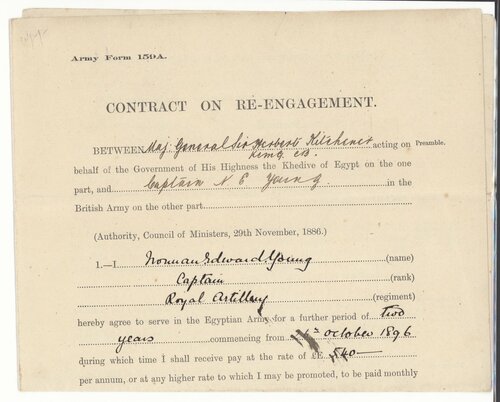 Army Form 159A.
CONTRACT ON RE-ENGAGEMENT.
BETWEEN Maj. General Sir Herbert Kitchener acting on Preamble.
KCMG CB.
behalf of the Government of His Highness the Khedive of Egypt on the one
part, and Captain N E Young in the
British Army on the other part
(Authority, Council of Ministers, 29th November, 1886.)
1.—I Norman Edward Young (name)
Captain (rank)
Royal Artillery (regiment)
hereby agree to serve in the Egyptian Army for a further period of two
years commencing from October 1896
during which time I shall receive pay at the rate of £E. 540—
per annum, or at any higher rate to which I may be promoted, to be paid monthly